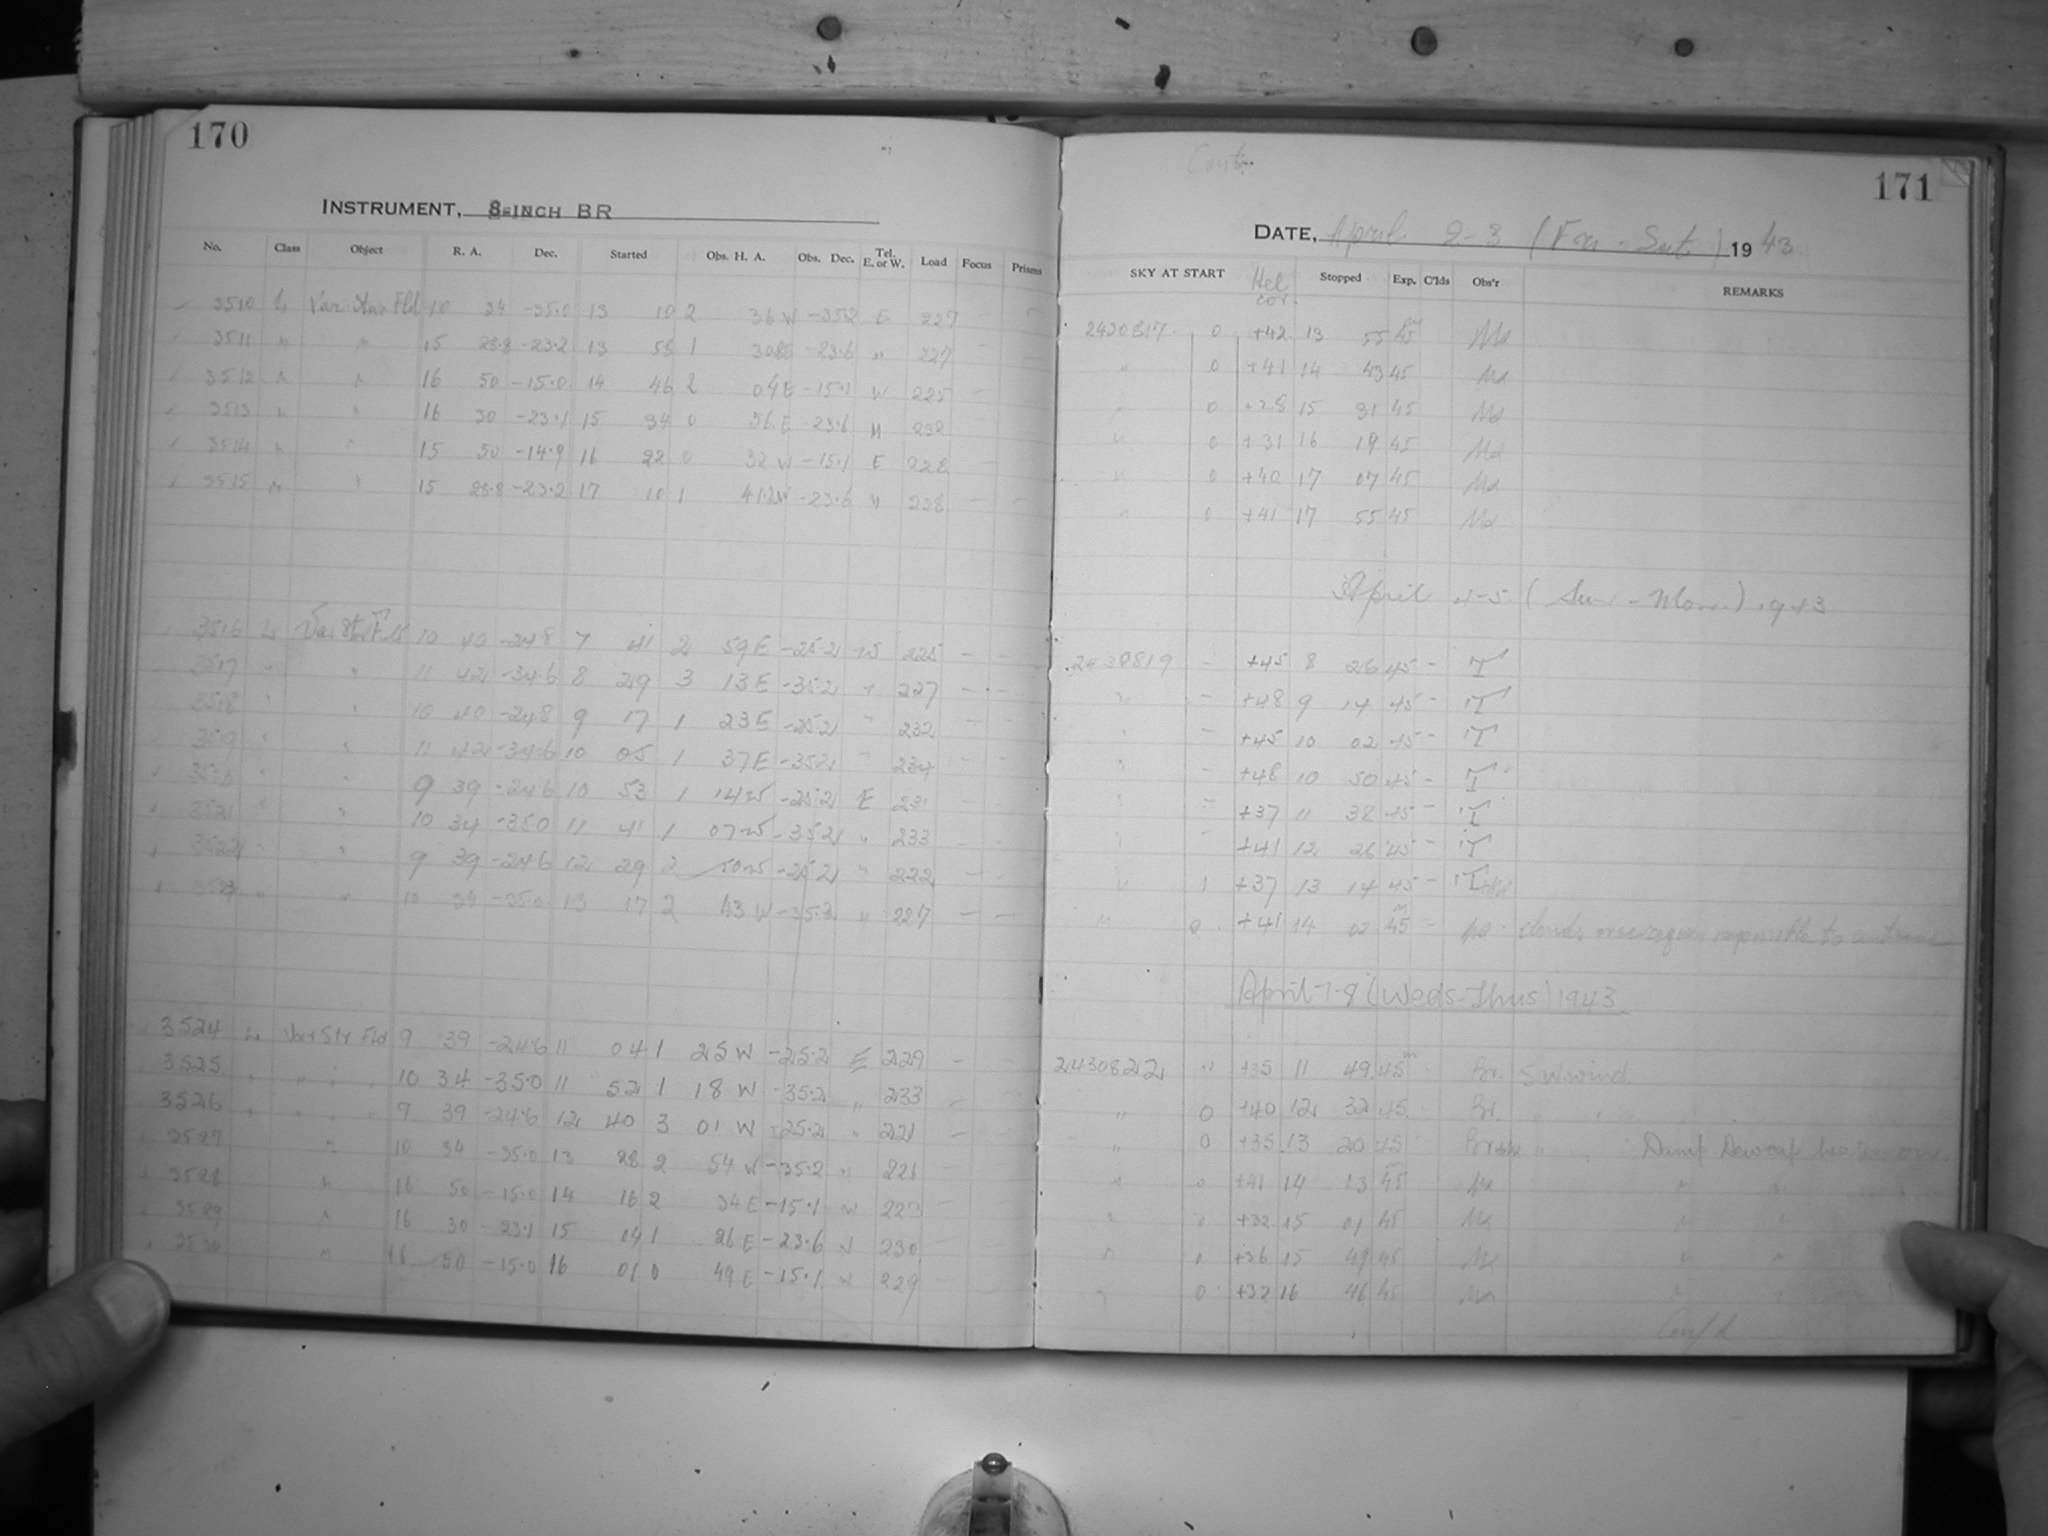 170
INSTRUMENT, 8-INCH BR
No. Class Object R. A. Dec. Started Obs. H. A. Obs. Dec. Tel. E. or W. Load Focus Prisms
3510 L Var Star Fld 10 34 -35.0 13 10 2 36 W -35.2 E 227
3511 " " 15 23.8 -23.2 13 58 1 -23.6 " 227
3512 " " 16 50 -15.0 14 46 2 04 E -15.1 W 225
3513 " " 16 30 -23.1 15 34 0 56 E -23.6 " 232
3514 " " 15 50 -14.9 16 22 0 32 W -15.1 E 228
3515 " " 15 23.8 -23.2 17 10 1 41.2 W -23.6 " 228
3516 L Var Star Fld 10 40 -24.8 7 41 2 59 E -25.2 W 225 - -
3517 " " 11 42 -34.6 8 29 3 13 E -35.2 " 227 - -
3518 " " 10 40 -24.8 9 17 1 23 E -25.2 " 232 - -
3519 " " 11 42 -34.6 10 05 1 37 E -35.2 " 234 - -
3520 " " 9 39 -24.6 10 53 1 14 W -25.2 E 231 - -
3521 " " 10 34 -35.0 11 41 1 07 W -35.2 " 233 - -
3522 " " 9 39 -24.6 12 29 2 50 W -25.2 " 222 - -
3523 " " 10 34 -35.0 13 17 2 43 W -35.2 " 227 - -
3524 L Var Str Fld 9 39 -24.6 11 04 1 25 W -25.2 E 229 -
3525 " " " " 10 34 -35.0 11 52 1 18 W -35.2 " 233 -
3526 " " " " 9 39 -24.6 12 40 3 01 W -25.2 " 221 -
3527 " 10 34 -35.0 13 28 2 54 W -35.2 " 226
3528 " 16 50 -15.0 14 16 2 34 E -15.1 W 223
3529 " 16 30 -23.1 15 04 1 26 E -23.6 " 230
3530 " 16 50 -15.0 16 01 0 49 E -15.1 W 229
171
DATE, April 2-3 (Fri - Sat) 1943
SKY AT START Hel cor. Stopped Exp. C'lds Obs'r REMARKS
2430817 0 +42 13 55 45 Md
" 0 +41 14 43 45 Md
" 0 +28 15 31 45 Md
" 0 +31 16 19 45 Md
" 0 +40 17 07 45 Md
" 0 +41 17 55 45 Md
April 4-5 (Sun - Mon) 1943
2430819 - +45 8 26 45 - T
" - +48 9 14 45 - T
" - +45 10 02 45 - T
" - +48 10 50 45 - T
" - +37 11 38 45 - T
" - +41 12 26 45 - T
" 1 +37 13 14 45 - T
" 0 +41 14 02 45 - Md clouds over region impossible to continue
April 7-8 (Weds-Thus) 1943
2430822 " +35 11 49 45 Br. S.W. wind
" 0 +40 12 32 45 Br. " "
" 0 +35 13 20 45 " " Damp Dewcap heater on
" 0 +41 14 13 45 Md " "
" 0 +32 15 01 45 Md " "
" 0 +36 15 49 45 Md " "
" 0 +32 16 46 45 Md " "
Cont'd